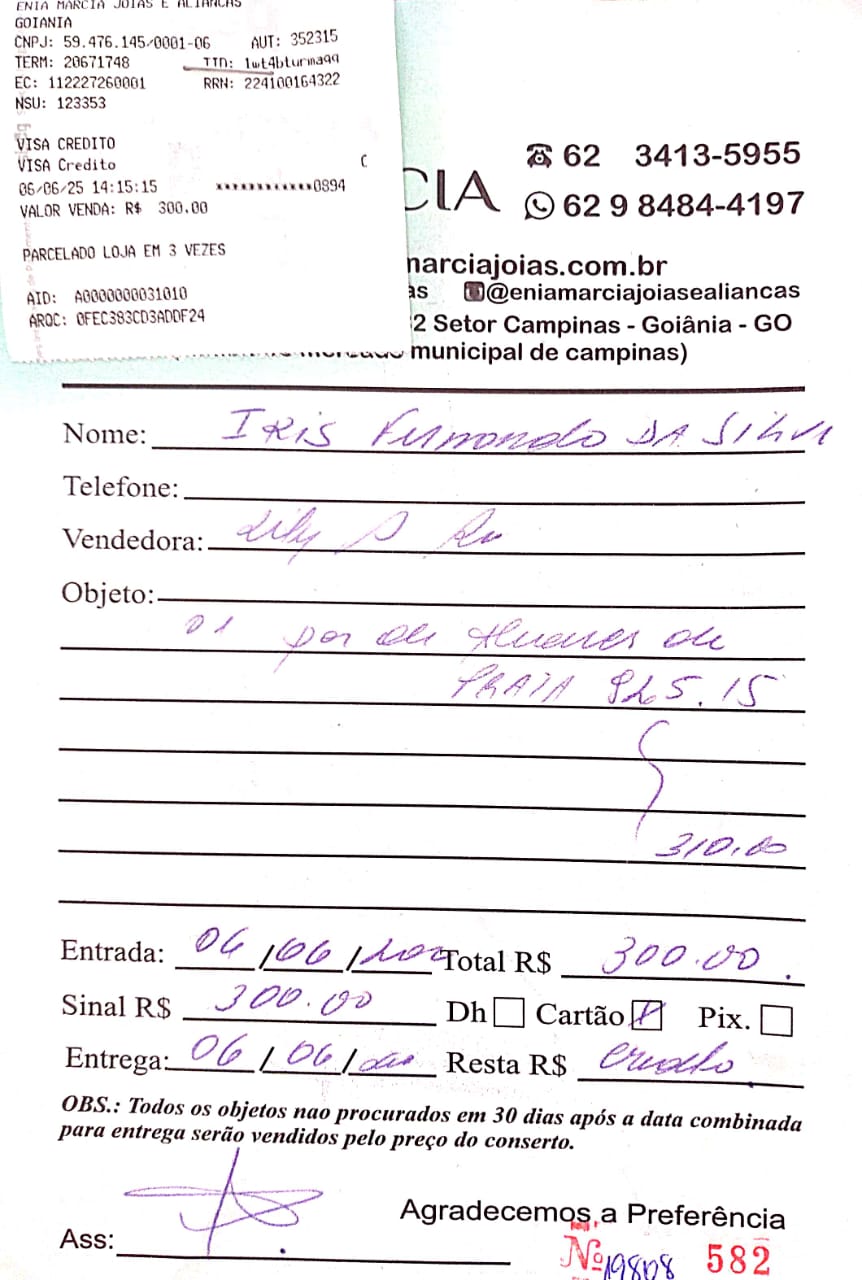 ENIA MARCIA JOIAS E ALIANCAS
GOIANIA
CNPJ: 59.476.145/0001-06 AUT: 352315
TERM: 20671748 TTD: 1wt4bturmaqq
EC: 112227260001 RRN: 224100164322
NSU: 123353
VISA CREDITO
VISA Credito C
06/06/25 14:15:15 ************0894
VALOR VENDA: R$ 300.00
PARCELADO LOJA EM 3 VEZES
AID: A0000000031010
ARQC: 0FEC383CD3ADDF24
CIA
62 3413-5955
62 9 8484-4197
marciajoias.com.br
as @eniamarciajoiasealiancas
2 Setor Campinas - Goiânia - GO
municipal de campinas)
Nome: IRIS Fernando DA SILVA
Telefone:
Vendedora:
Objeto:
01 par de de
PRATA 925. 15
310.00
Entrada: 06/06/202 Total R$ 300.00
Sinal R$ 300.00 Dh Cartão Pix.
Entrega: 06/06/ Resta R$ credito
OBS.: Todos os objetos nao procurados em 30 dias após a data combinada
para entrega serão vendidos pelo preço do conserto.
Agradecemos a Preferência
Ass:
Nº 19808 582